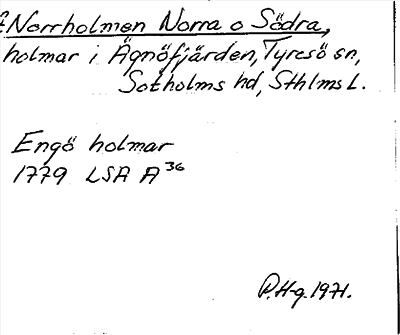 Norrholmen Norra o Södra,
holmar i Ägnöfjärden, Tyresö sn,
Sotholms hd, Sthlms l.
Engö holmar
1779 LSA A 36
P.H-g. 1971.